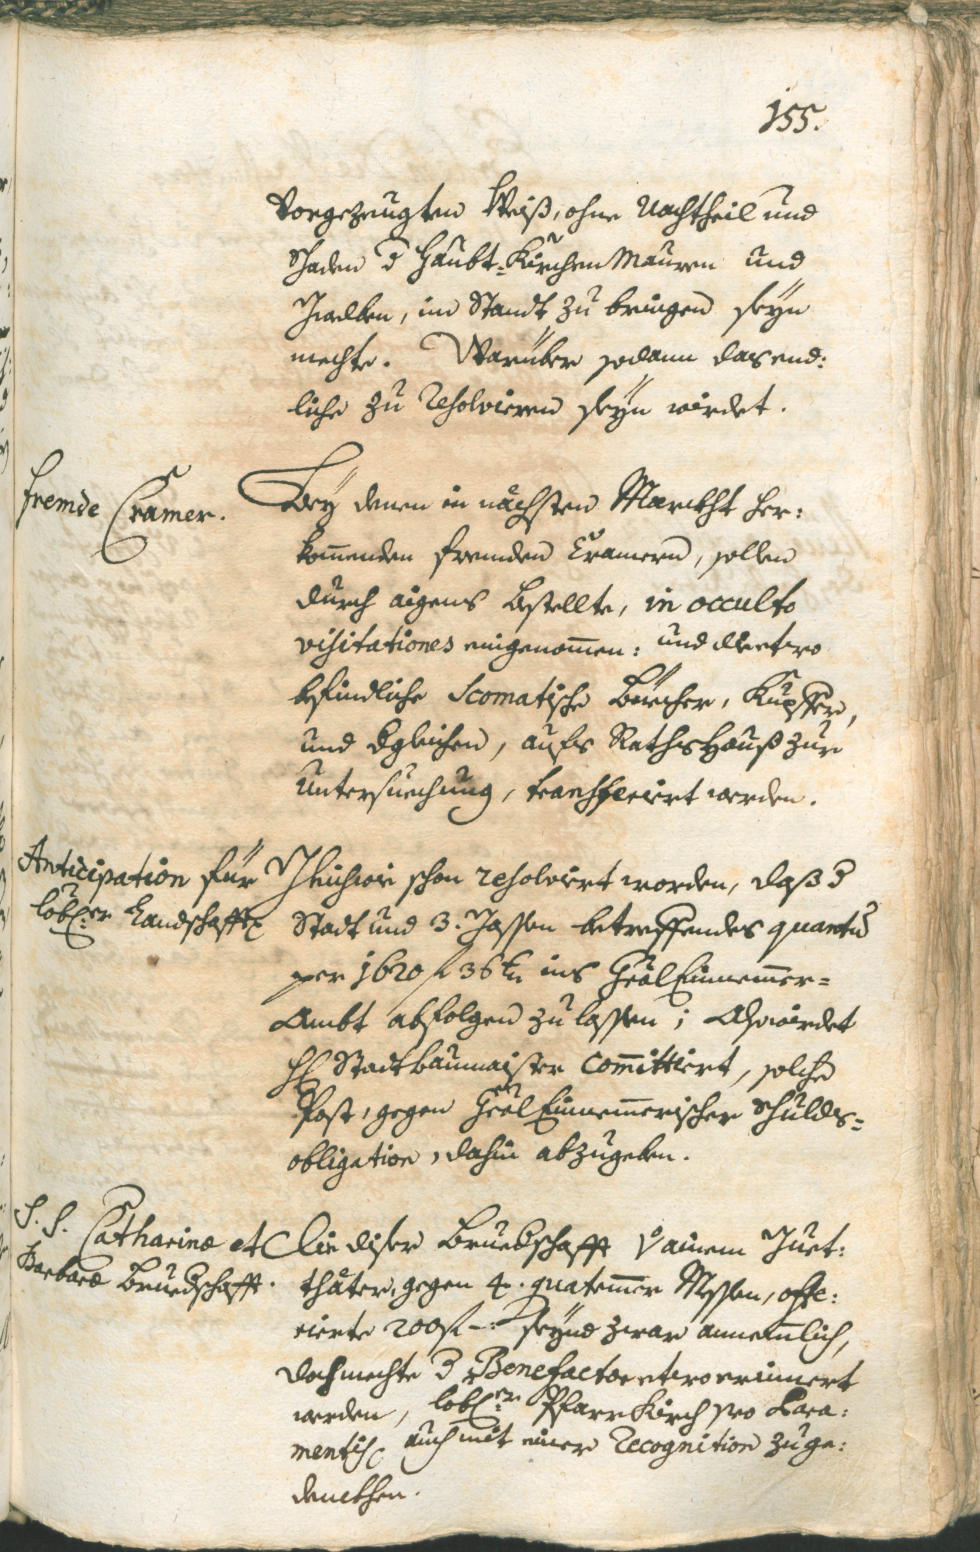 155.
vorgezeugten Weiß, ohne Nachtheil und
Schaden d Haubt-Kirchen Mauren und
Zwelben, im Standt zu bringen seyn
mechte. Warüber sodann das end:
liche zu resolvieren seyn wirdet.
fremde Cramer.
Bey denen in nächsten Marckht her:
kom̄enden frembden Cramern, sollen
durch aigens bestellte, in occulto
visitationes eingenom̄en: und alletwo
befindliche Scomatische Büecher, Kupffer,
und dgleichen, aufs Rathshauß zur
Untersuechung, transferiert werden.
Anticipation für
lobl:er Landschafft
Gleichwie schon resolviert worden, daß d
Stadt und 3. Gassen betreffendes quantū
per 1620 f 36 kr. ins Gräl Einnem̄er-
Ambt abfolgen zu lassen; Als wirdet
H Stadtbaumaister com̄ittiert, solche
Post, gegen Gräl Einnem̄erischer Schulds-
obligation, dahin abzugeben.
S. S. Catharinæ et
Barbaræ Bruedschafft.
Die diser Bruedschafft v ainem Guet:
thäter, gegen 4. quatem̄er Messen, offe:
rierte 200 f -: seynd zwar annem̄lich,
doch mechte d Benefactor etwo erinnert
werden, lobl:er Pfarrkirch pro Para:
mentis auch mit einer Recognition zuge:
denckhen.